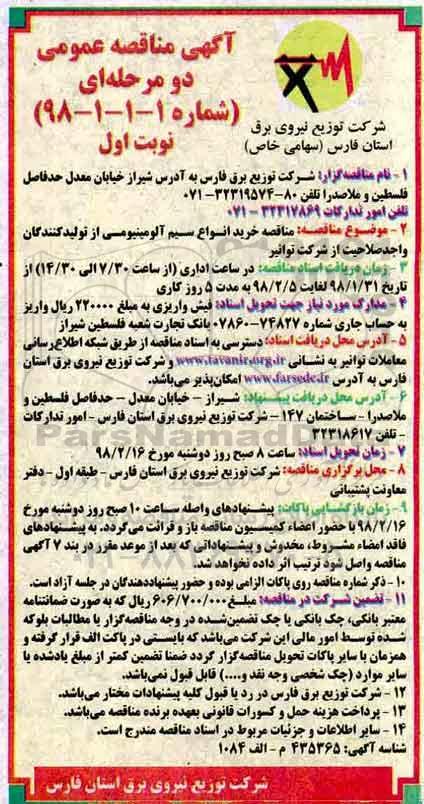 آگهی مناقصه عمومی
دو مرحله‌ای
(شماره ۱-۱-۱-۹۸)
نوبت اول
شرکت توزیع نیروی برق
استان فارس (سهامی خاص)
۱- نام مناقصه‌گزار: شرکت توزیع برق فارس به آدرس شیراز خیابان معدل حدفاصل
فلسطین و ملاصدرا تلفن ۸۰-۳۲۳۱۹۵۷۴-۰۷۱
تلفن امور تدارکات ۳۲۳۱۷۸۶۹ - ۰۷۱
۲- موضوع مناقصه: مناقصه خرید انواع سیم آلومینیومی از تولیدکنندگان
واجدصلاحیت از شرکت توانیر
۳- زمان دریافت اسناد مناقصه: در ساعت اداری (از ساعت ۷/۳۰ الی ۱۴/۳۰) از
تاریخ ۹۸/۱/۳۱ لغایت ۹۸/۲/۵ به مدت ۵ روز کاری
۴- مدارک مورد نیاز جهت تحویل اسناد: فیش واریزی به مبلغ ۲۲۰۰۰۰ ریال واریز
به حساب جاری شماره ۷۴۸۲۷-۰۷۸۶۰ بانک تجارت شعبه فلسطین شیراز
۵- آدرس محل دریافت اسناد: دسترسی به اسناد مناقصه از طریق شبکه اطلاع‌رسانی
معاملات توانیر به نشانی www.tavanir.org.ir و شرکت توزیع نیروی برق استان
فارس به آدرس www.farsedc.ir امکان‌پذیر می‌باشد.
۶- آدرس محل دریافت پیشنهاد: شیراز – خیابان معدل – حدفاصل فلسطین و
ملاصدرا - ساختمان ۱۴۷ – شرکت توزیع نیروی برق استان فارس - امور تدارکات
- تلفن ۳۲۳۱۸۶۱۷
۷- زمان تحویل اسناد: ساعت ۸ صبح روز دوشنبه مورخ ۹۸/۲/۱۶
۸- محل برگزاری مناقصه: شرکت توزیع نیروی برق استان فارس - طبقه اول - دفتر
معاونت پشتیبانی
۹- زمان بازگشایی پاکات: پیشنهادهای واصله ساعت ۱۰ صبح روز دوشنبه مورخ
۹۸/۲/۱۶ با حضور اعضاء کمیسیون مناقصه باز و قرائت می‌گردد. به پیشنهادهای
فاقد امضاء مشروط، مخدوش و پیشنهاداتی که بعد از موعد مقرر در بند ۷ آگهی
مناقصه واصل شود ترتیب اثر داده نخواهد شد.
۱۰- ذکر شماره مناقصه روی پاکات الزامی بوده و حضور پیشنهاددهندگان در جلسه آزاد است.
۱۱- تضمین شرکت در مناقصه: مبلغ ۶۰۶/۷۰۰/۰۰۰ ریال که به صورت ضمانتنامه
معتبر بانکی، چک بانکی یا چک تضمین‌شده در وجه مناقصه‌گزار یا مطالبات بلوکه
شده توسط امور مالی این شرکت می‌باشد که بایستی در پاکت الف قرار گرفته و
همزمان با سایر پاکات تحویل مناقصه‌گزار گردد ضمنا تضمین کمتر از مبلغ یادشده یا
سایر موارد (چک شخصی وجه نقد و....) قابل قبول نمی‌باشد.
۱۲- شرکت توزیع برق فارس در رد یا قبول کلیه پیشنهادات مختار می‌باشد.
۱۳- پرداخت هزینه حمل و کسورات قانونی بعهده برنده مناقصه می‌باشد.
۱۴- سایر اطلاعات و جزئیات مربوط در اسناد مناقصه مندرج است.
شناسه آگهی: ۴۳۵۳۶۵ م - الف ۱۰۸۴
شرکت توزیع نیروی برق استان فارس